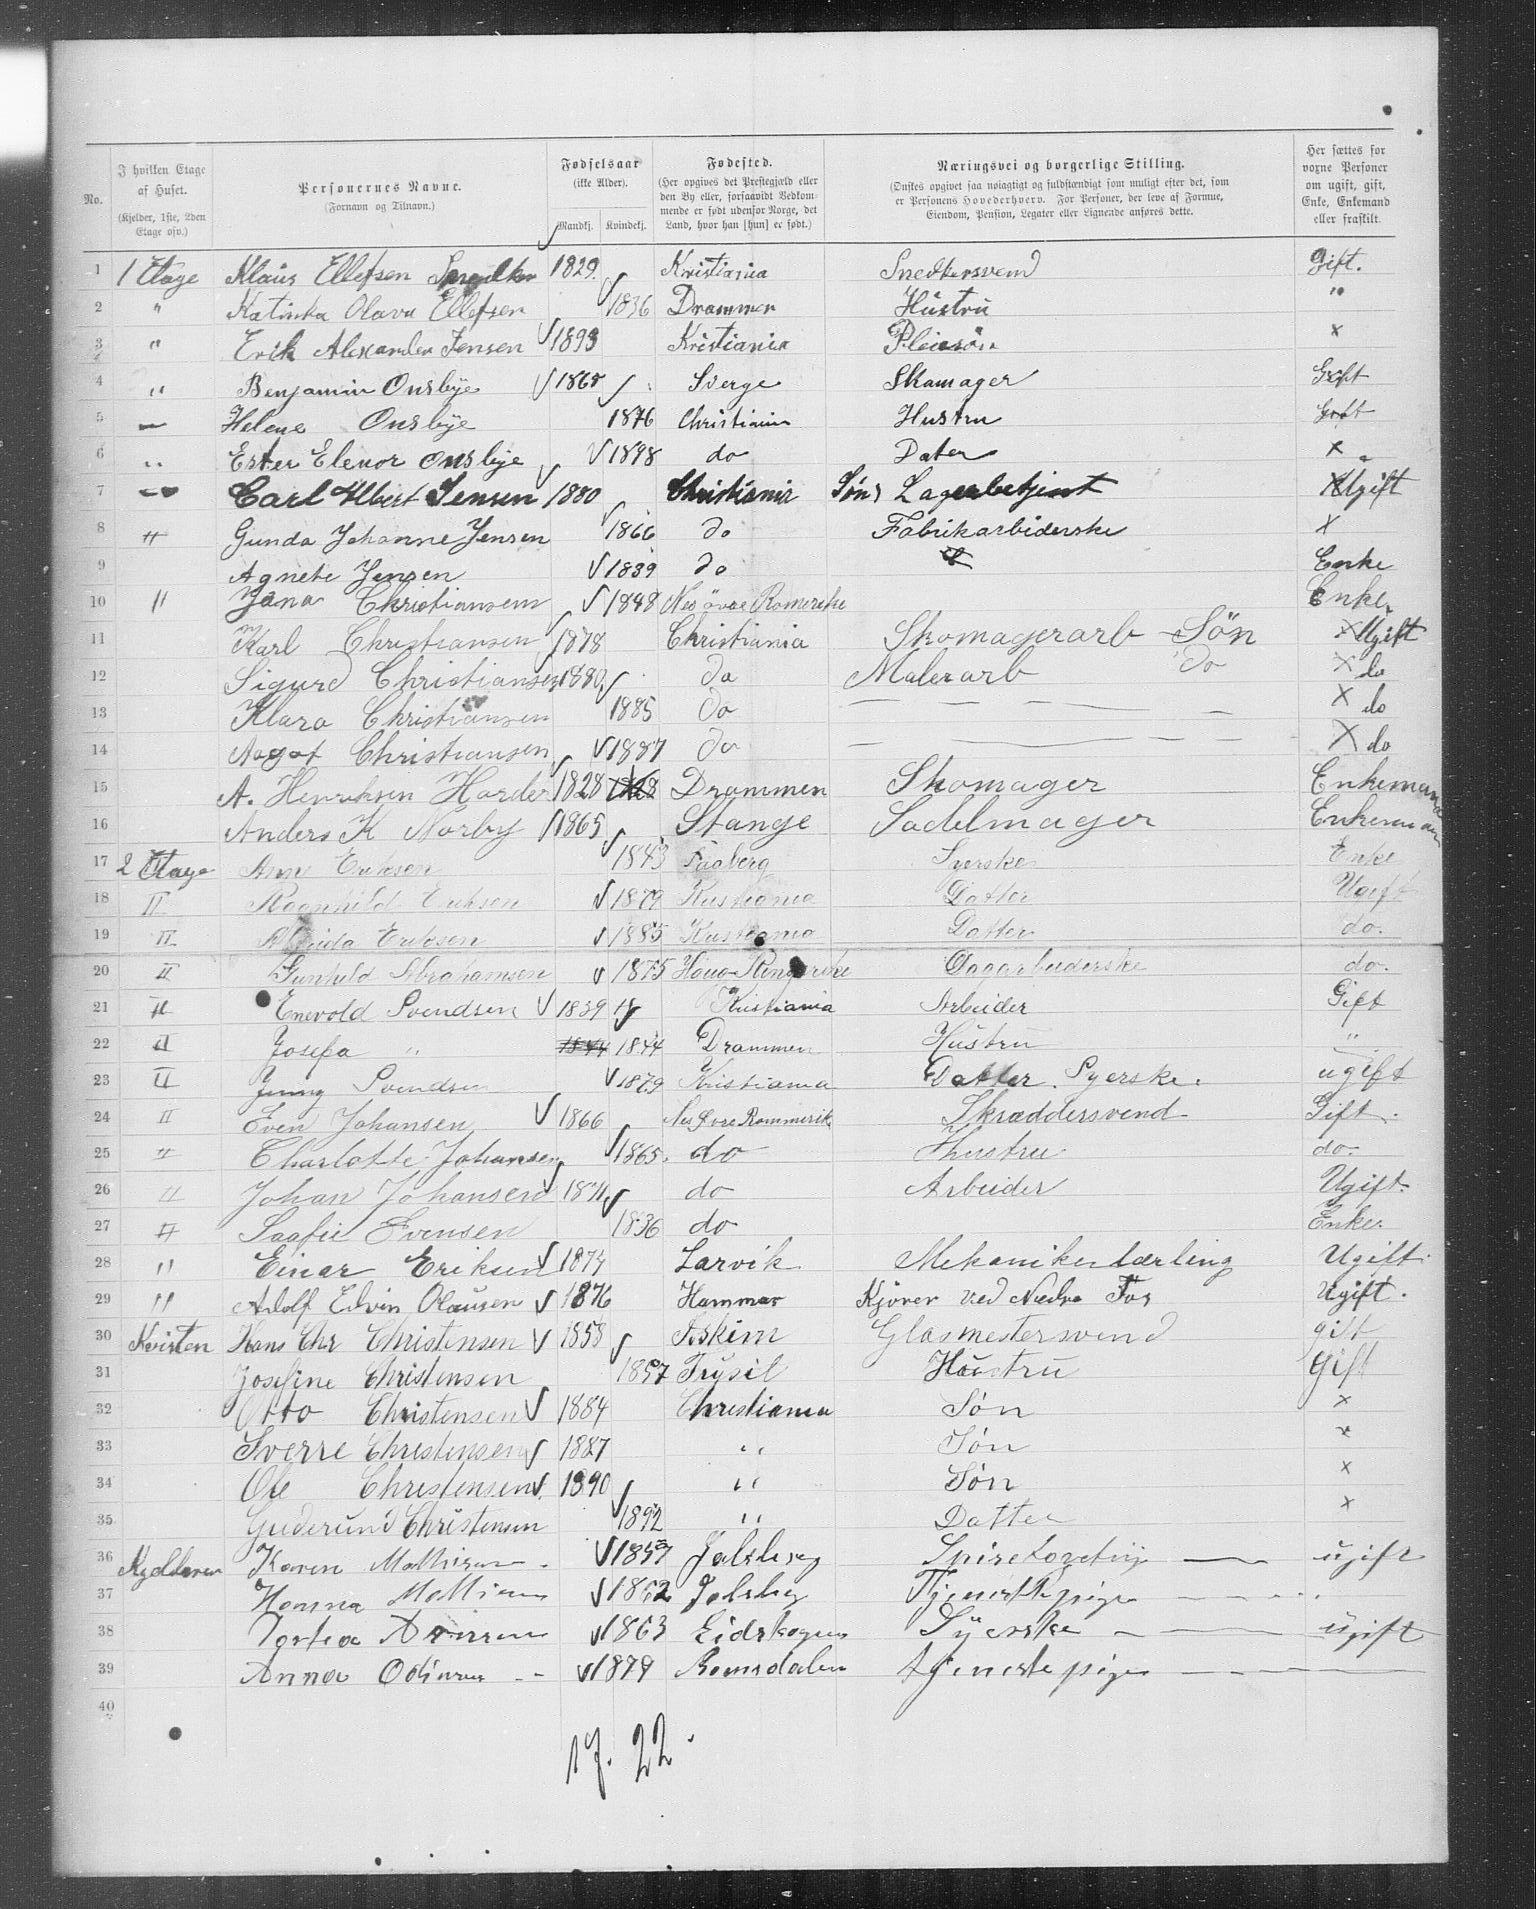 No. | I hvilken Etage af Huset. (Kjelder, 1ste, 2den Etage osv.) | Personernes Navne. (Fornavn og Tilnavn.) | Fødselsaar (ikke Alder). Mandkj. Kvindekj. | Fødested. (Her opgives det Prestegjæld eller den By eller, forsaavidt Vedkommende er født udenfor Norge, det Land, hvor han [hun] er født.) | Næringsvei og borgerlige Stilling. (Ønskes opgivet saa nøiagtigt og fuldstændigt som muligt efter det, som er Personens Hovederhverv. For Personer, der leve af Formue, Eiendom, Pension, Legater eller Lignende anføres dette. | Her sættes for voxne Personer om ugift, gift, Enke, Enkemand eller fraskilt.
1 1 Etage Klaus Ellefsen 1829 Kristiania Snedkersvend Gift.
2 " Katinka Olava Ellefsen 1836 Drammen Hustru "
3 " Erik Alexander Jensen 1893 Kristiania Pleiesøn x
4 " Benjamin Onsbye 1868 Sverge Skomager Gift
5 Helene Onsbye 1876 Christiania Hustru Gift
6 " Ester Elenor Onsbye 1898 do Dater x
7 " Carl Albert Jensen 1880 Christiania Søn, Lagerbetjent Ugift
8 " Gunda Johanne Jensen 1866 do Fabrikarbiderske x
9 Agnete Jensen 1839 do Enke
10 " Jana Christiansen 1848 Nes øvre Romerike Enke
11 Karl Christiansen 1878 Christiania Skomagerarb - Søn x Ugift
12 Sigurd Christiansen 1880 do Malerarb do x do
13 Klara Christiansen 1885 do x do
14 Aagot Christiansen 1887 do x do
15 A. Henriksen Harder 1828 Drammen Skomager Enkemand
16 Anders K Nørby 1865 Stange Sadelmager Enkemand
17 2 Etage Ann Eriksen 1843 Faaberg Syerske Enke
18 " Ragnhild Eriksen 1879 Kristiania Datter Ugift
19 " Eriksen 1885 Kristiania Datter do.
20 " Gunhild Abrahamsen 1875 Ringerike Dagarbeiderske do.
21 " Enevold Svendsen 1839 Kristiania Arbeider Gift
22 " Josefa " 1844 1844 Drammen Hustru "
23 " Jenny Svendsen 1879 Kristiania Datter. Syerske. ugift
24 " Even Johansen 1866 Nes Øvre Rommerik Skræddersvend Gift.
25 " Charlotte Johansen 1865. do Hustru do.
26 " Johan Johansen do Arbeider Ugift.
27 " Evensen 1836 do Enke.
28 " Einar Eriksen 1874 Larvik Mekanikerlærling Ugift.
29 " Adolf Edvin Olausen 1876 Hammar Kjører ved Nedre Fos Ugift.
30 Kvisten Hans Chr Christensen 1858 Askim Glasmestersvend gift
31 Josefine Christensen 1857 Trysil Hustru Gift
32 Otto Christensen 1884 Christiania Søn x
33 Sverre Christensen 1887 " Søn x
34 Ole Christensen 1890 " Søn x
35 Guderund Christensen 1892 " Datter x
36 Kjelderen Karen 1857 ugift
37 1862 Tjenestepige
38 1863 Eidskogen Syerske ugift
39 Anna 1879 Romsdalen tjenestepige
40
17. 22.